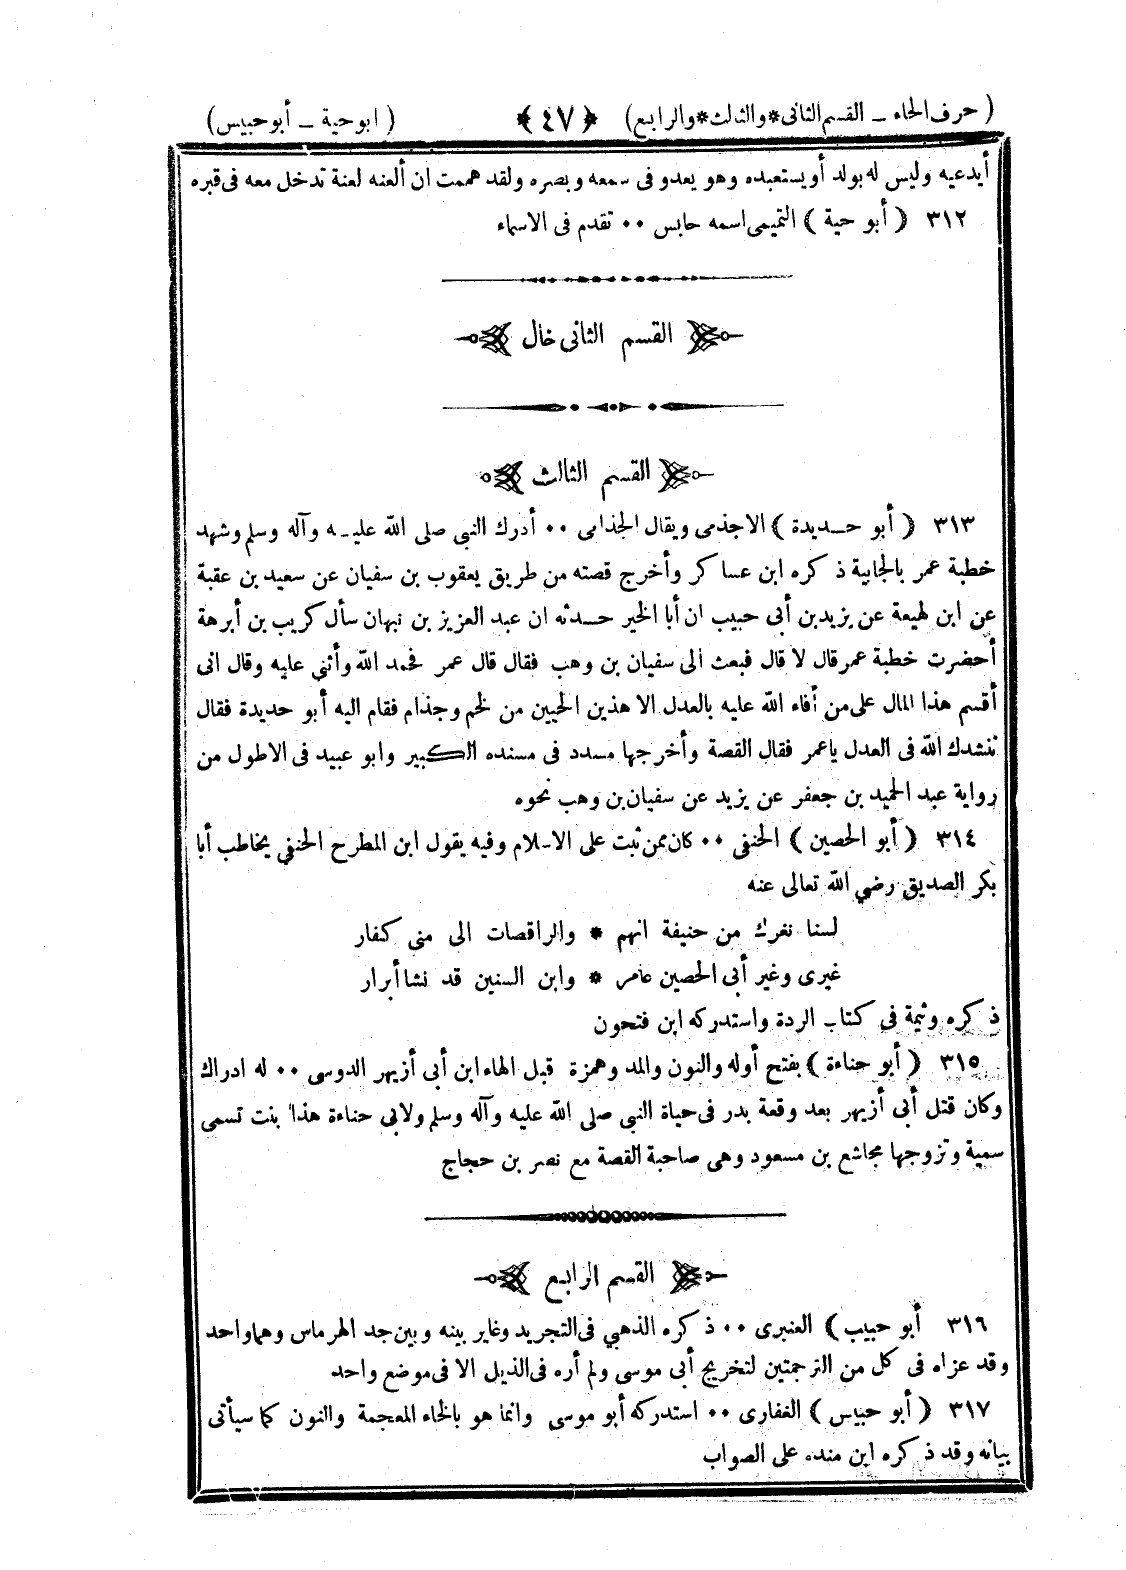 ( حرف الحاء ـ القسم الثانى * والثالث * والرابع ) ﴿ ٤٧ ﴾ ( ابو حية ـ أبو حبيس )
أيدعيه وليس له بولد أو يستعبده وهو يعدو فى سمعه وبصره ولقد هممت ان ألعنه لعنة تدخل معه فى قبره
٣١٢ ( أبو حية ) التميمى اسمه حابس ۰۰ تقدم فى الاسماء
القسم الثانى خال
القسم الثالث
٣١٣ ( أبو حـديدة ) الاجذمى ويقال الجذامى ۰۰ أدرك النبى صلى الله عليـه وآله وسلم وشهد
خطبة عمر بالجابية ذكره ابن عساكر وأخرج قصته من طريق يعقوب بن سفيان عن سعيد بن عقبة
عن ابن لهيعة عن يزيد بن أبى حبيب ان أبا الخير حـدثه ان عبد العزيز بن نبهان سأل كريب بن أبرهة
أحضرت خطبة عمر قال لا قال فبعث الى سفيان بن وهب فقال قال عمر فحمد الله وأثنى عليه وقال انى
أقسم هذا المال على من أفاء الله عليه بالعدل الا هذين الحيين من لخم وجذام فقام اليه أبو حديدة فقال
ننشدك الله فى العدل ياعمر فقال القصة وأخرجها مسدد فى مسنده الكبير وابو عبيد فى الاطول من
رواية عبد الحميد بن جعفر عن يزيد عن سفيان بن وهب نحوه
٣١٤ ( أبو الحصين ) الحنفى ۰۰ كان ممن ثبت على الاسلام وفيه يقول ابن المطرح الحنفي يخاطب أبا
بكر الصديق رضي الله تعالى عنه
لسنا نغرك من حنيفة انهم * والراقصات الى منى كفار
غيرى وغير أبى الحصين عامر * وابن السنين قد نشا أبرار
ذكره وثيمة فى كتاب الردة واستدركه ابن فتحون
٣١٥ ( أبو حناءة ) بفتح أوله والنون والمد وهمزة قبل الهاء ابن أبى أزيهر الدوسى ۰۰ له ادراك
وكان قتل أبى أزيهر بعد وقعة بدر فى حياة النبى صلى الله عليه وآله وسلم ولابى حناءة هذا بنت تسمى
سمية وتزوجها مجاشع بن مسعود وهى صاحبة القصة مع نصر بن حجاج
القسم الرابع
٣١٦ أبو حبيب ) العنبرى ۰۰ ذكره الذهبي فى التجريد وغاير بينه وبين جد الهرماس وهما واحد
وقد عزاه فى كل من الترجمتين لتخريج أبى موسى ولم أره فى الذيل الا فى موضع واحد
٣١٧ ( أبو حبيس ) الغفارى ۰۰ استدركه أبو موسى وانما هو بالخاء المعجمة والنون كما سيأتى
بيانه وقد ذكره ابن منده على الصواب